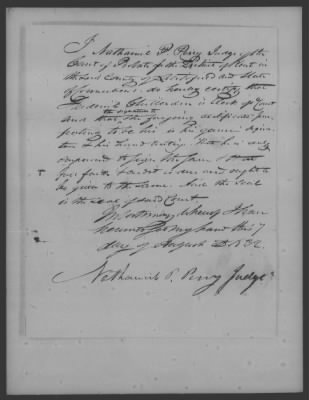 I Nathaniel P Perry Judge of the
Court of Probate for the District of Kent in
County of Litchfield and State
of Connecticut do hereby certify that
is Clerk of Court
the signature to
And that the foregoing certificate pur
porting to be his is his genuine signa
ture & in his hand writing that he is duly
empowered to sign the same & that
full faith & credit is due and ought to
be given to the same. And the Seal
is the Seal of said Court
In testimony whereof I have
hereunto set my hand this 7
day of August AD 1832
Nathaniel P. Perry Judge